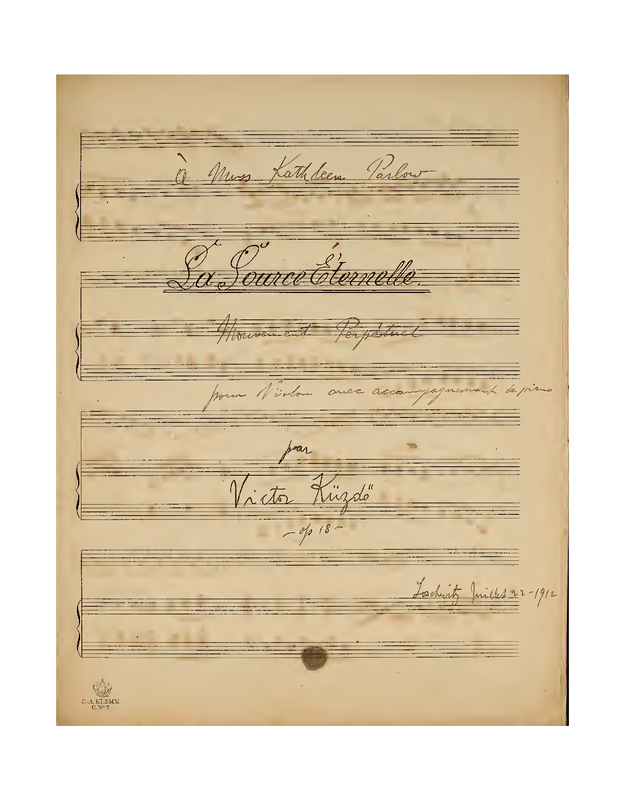 À Miss Kathleen Parlow
La Source Éternelle.
Mouvement Perpétuel
pour Violon avec accompagnement de piano
par
Victor Küzdő
- op 18 -
Loschwitz Juillet 22 - 1912
C.A. KLEMM.